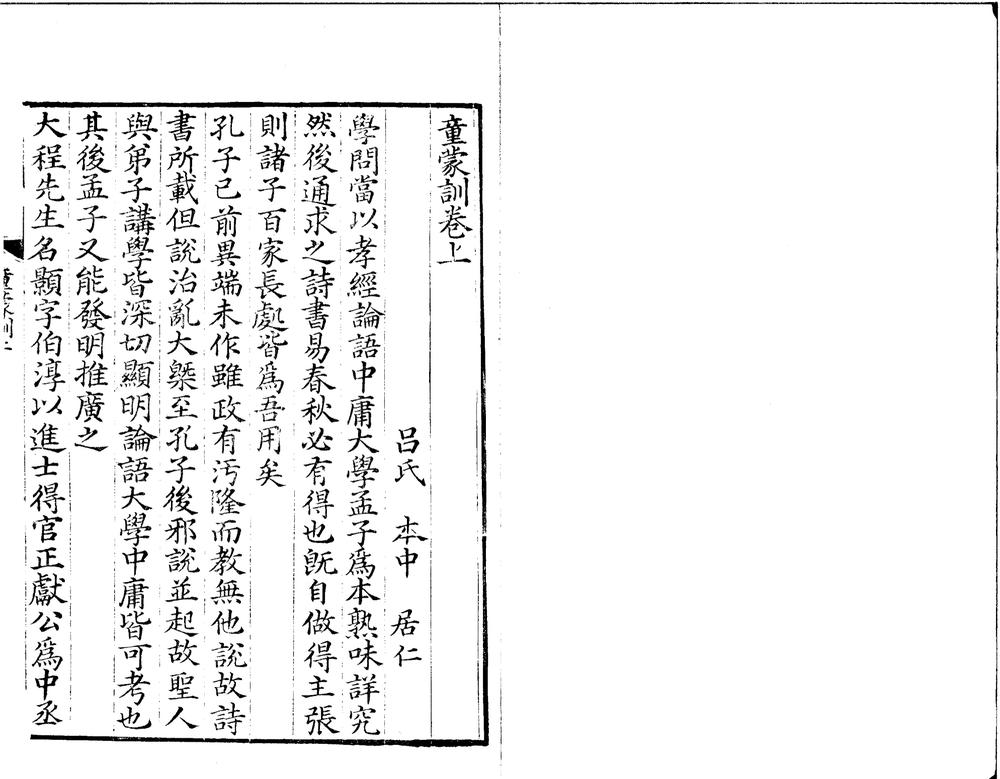 童蒙訓卷上
呂氏　本中　居仁
學問當以孝經論語中庸大學孟子爲本熟味詳究
然後通求之詩書易春秋必有得也旣自做得主張
則諸子百家長處皆爲吾用矣
孔子已前異端未作雖政有汚隆而教無他說故詩
書所載但說治亂大槩至孔子後邪說並起故聖人
與弟子講學皆深切顯明論語大學中庸皆可考也
其後孟子又能發明推廣之
大程先生名顥字伯淳以進士得官正獻公爲中丞